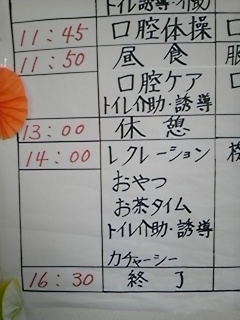 トイレ誘導・介助
11:45 口腔体操
11:50 昼食
口腔ケア
トイレ介助・誘導
13:00 休憩
14:00 レクレーション
おやつ
お茶タイム
トイレ介助・誘導
カチャーシー
16:30 終了